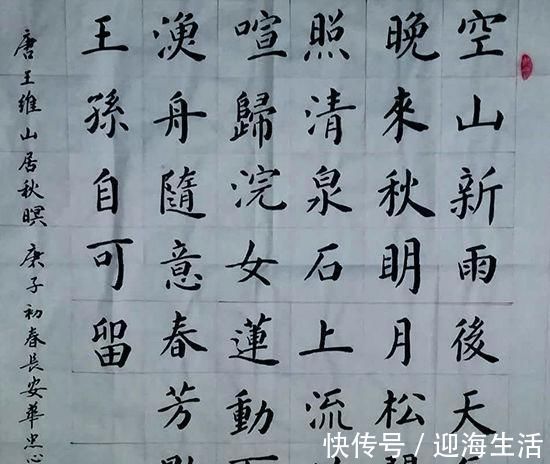 空山新雨後天
晚來秋明月松
照清泉石上流
喧歸浣女蓮動
漁舟隨意春芳
王孫自可留
唐王維山居秋暝 庚子初春長安華忠
快传号 / 迎海生活